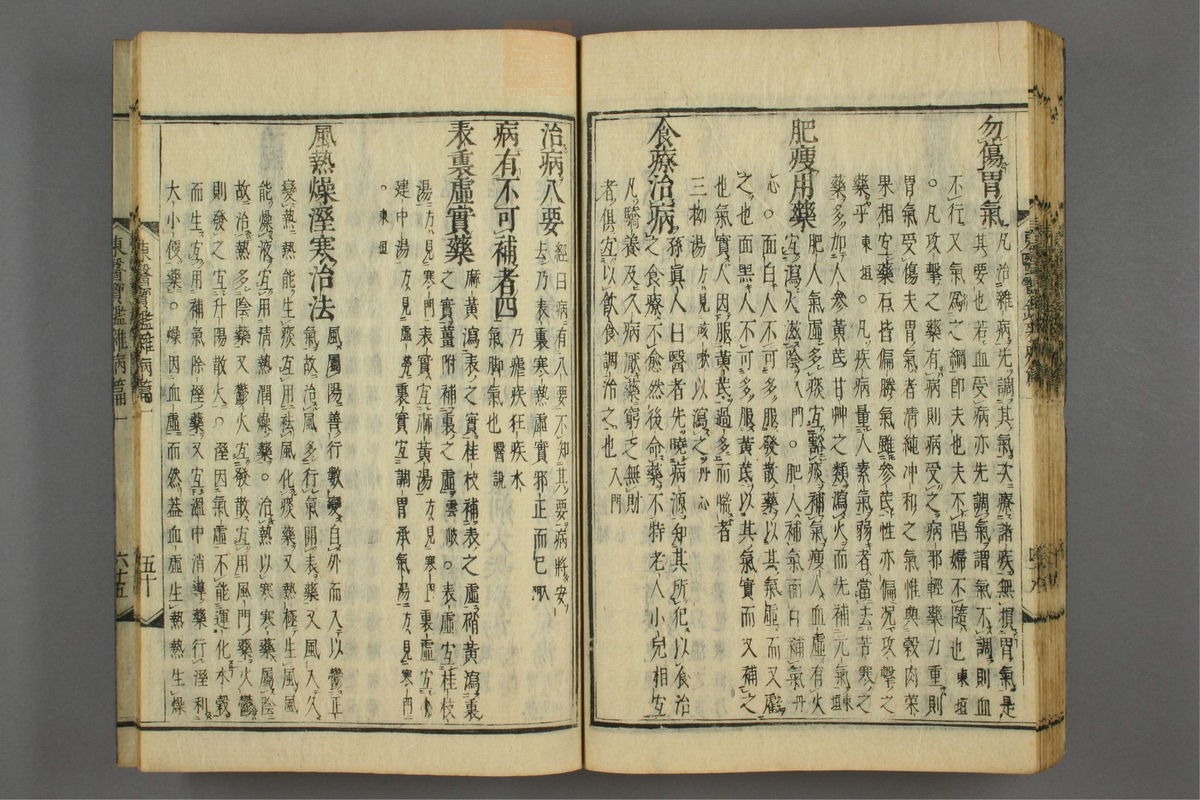 勿傷胃氣 凡治雜病先調其氣次療諸疾無損胃氣是
其要也若血受病亦先調氣謂氣不調則血
不行又氣爲之綱卽夫也夫不唱婦不隨也東垣
○凡攻擊之藥有病則病受之病邪輕藥力重則
胃氣受傷夫胃氣者淸純冲和之氣惟與穀肉菜
果相宜藥石皆偏勝氣雖參芪性亦偏况攻擊之
藥乎東垣○凡疾病量人素氣弱者當去苦寒之
藥多加人參黃芪甘艸之類瀉火而先補元氣東垣
肥瘦用藥 肥人氣虛多痰宜豁痰補氣瘦人血虛有火
宜瀉火滋陰入門○肥人補氣面白補氣丹
心○面白人不可多服發散藥以其氣虛而又虧
之也面黑人不可多服黃芪以其氣實而又補之
也氣實人因服黃芪過多而喘者
三拗湯方見咳嗽以瀉之丹心
食療治病 孫眞人曰醫者先曉病源知其所犯以食治
之食療不愈然後命藥不特老人小兒相宜
凡驕養及久病厭藥窮乏無財
者俱宜以飮食調治之也入門
治病八要 經曰病有八要不知其要病將安
去乃表裏寒熱虛實邪正而已入門
病有不可補者四 乃瘧疾狂疾水
氣脚氣也醫說
表裏虛實藥 麻黃瀉表之實桂枝補表之虛硝黃瀉裏
之實薑附補裏之虛雲岐○表虛宜桂枝
湯方見寒門表實宜麻黃湯方見寒門裏虛宜小
建中湯方見虛勞裏實宜調胃承氣湯方見寒門
○東垣
風熱燥溼寒治法 風屬陽善行數變自外而入以鬱正
氣故治風多行氣開表藥又風入久
變熱熱能生痰宜用祛風化痰藥又熱極生風風
能燥液宜用淸熱潤燥藥○治熱以寒寒藥屬陰
故治熱多陰藥又鬱火宜發散宜用風門藥火鬱
則發之宜升陽散火○溼因氣虛不能運化水穀
而生宜用補氣除溼藥又宜溫中消導藥行溼利
大小便藥○燥因血虛而然蓋血虛生熱熱生燥
東醫寶鑑雜病篇一
五十
六十五